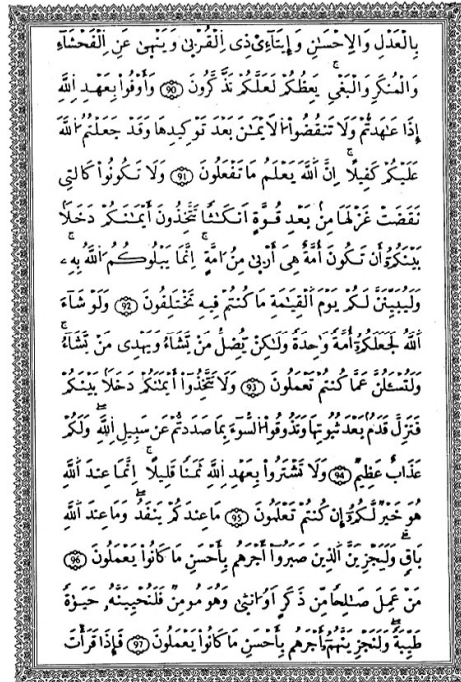 بِالْعَدْلِ وَالِاحْسَٰنِ وَإِيتَآءِے ذِی اِلْقُرْبٰی وَيَنْهیٰ عَنِ اِلْفَحْشَآءِ
وَالْمُنكَرِ وَالْبَغْیِ ۚ يَعِظُكُمْ لَعَلَّكُمْ تَذَّكَّرُونَ ﴿90﴾ وَأَوْفُوا۟ بِعَهْدِ اِللَّهِ
إِذَا عَٰهَدتُّمْ وَلَا تَنقُضُوا۟ اُلَايْمَٰنَ بَعْدَ تَوْكِيدِهَا وَقَدْ جَعَلْتُمُ اُللَّهَ
عَلَيْكُمْ كَفِيلًا ۚ اِنَّ اَللَّهَ يَعْلَمُ مَا تَفْعَلُونَ ﴿91﴾ وَلَا تَكُونُوا۟ كَالتِی
نَقَضَتْ غَزْلَهَا مِنۢ بَعْدِ قُوَّةٍ اَنكَٰثًا تَتَّخِذُونَ أَيْمَٰنَكُمْ دَخَلًۢا
بَيْنَكُمُۥٓ أَن تَكُونَ أُمَّةٌ هِیَ أَرْبیٰ مِنُ امَّةٍ ۚ اِنَّمَا يَبْلُوكُمُ اُللَّهُ بِهِۦ ۚ
وَلَيُبَيِّنَنَّ لَكُمْ يَوْمَ اَلْقِيَٰمَةِ مَا كُنتُمْ فِيهِ تَخْتَلِفُونَ ﴿92﴾ وَلَوْ شَآءَ
اَللَّهُ لَجَعَلَكُمُۥٓ أُمَّةً وَٰحِدَةً وَلَٰكِنْ يُّضِلُّ مَنْ يَّشَآءُ وَيَهْدِی مَنْ يَّشَآءُ ۚ
وَلَتُسْـَٔلُنَّ عَمَّا كُنتُمْ تَعْمَلُونَ ﴿93﴾ وَلَا تَتَّخِذُوٓا۟ أَيْمَٰنَكُمْ دَخَلًۢا بَيْنَكُمْ
فَتَزِلَّ قَدَمٌۢ بَعْدَ ثُبُوتِهَا وَتَذُوقُوا۟ اُلسُّوٓءَ بِمَا صَدَدتُّمْ عَن سَبِيلِ اِللَّهِ ۖ وَلَكُمْ
عَذَابٌ عَظِيمٌ ﴿94﴾ وَلَا تَشْتَرُوا۟ بِعَهْدِ اِللَّهِ ثَمَنًا قَلِيلًا ۚ اِنَّمَا عِندَ اَللَّهِ
هُوَ خَيْرٌ لَّكُمُۥٓ إِن كُنتُمْ تَعْلَمُونَ ﴿95﴾ مَا عِندَكُمْ يَنفَدُ ۖ وَمَا عِندَ اَللَّهِ
بَاقٍ ۗ وَلَيَجْزِيَنَّ اَلذِينَ صَبَرُوٓا۟ أَجْرَهُم بِأَحْسَنِ مَا كَانُوا۟ يَعْمَلُونَ ﴿96﴾
مَنْ عَمِلَ صَٰلِحًا مِّن ذَكَرٍ اَوُ انثیٰ وَهُوَ مُومِنٌ فَلَنُحْيِيَنَّهُۥ حَيَوٰةً
طَيِّبَةً ۖ وَلَنَجْزِيَنَّهُمُۥٓ أَجْرَهُم بِأَحْسَنِ مَا كَانُوا۟ يَعْمَلُونَ ﴿97﴾ فَإِذَا قَرَأْتَ